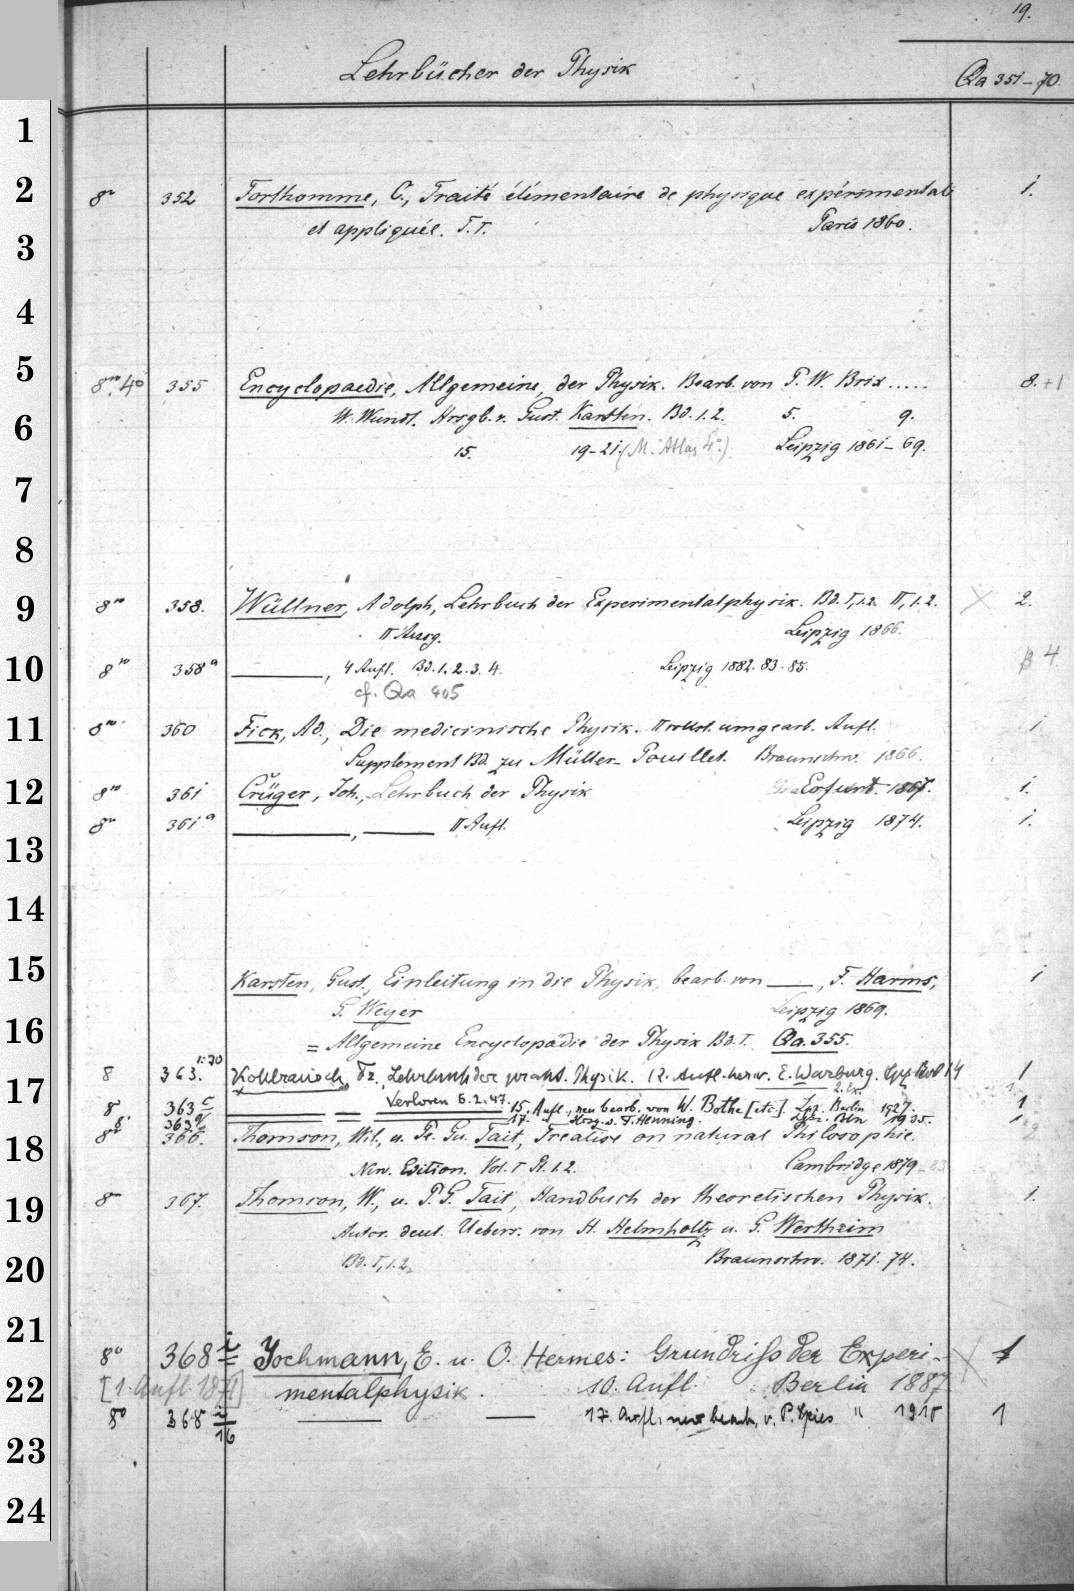 19.
Lehrbücher der Physik Qa 351-70.
1
2 8° 352 Forthomme, C., Traité élémentaire de physique expérimentale 1.
et appliquée. T.I. Paris 1860.
3
4
5 8vo.4° 355 Encyclopaedie, Allgemeine, der Physik. Bearb. von P. W. Brix ..... 8.+1
6 W. Wundt. Hrsgb. v. Gust. Karsten. Bd. 1.2. 5. 9.
15. 19-21. (M. Atlas 4°.) Leipzig 1861-69.
7
8
9 8vo 358. Wüllner, Adolph, Lehrbuch der Experimentalphysik. Bd. I,1.2. II,1.2. 2.
Leipzig 1866.
10 8vo 358a ———, 4 Aufl. Bd. 1. 2. 3. 4. Leipzig 1882. 83. 85. 4
cf. Qa 405
11 8vo 360 Fick, Ad., Die medicinische Physik. II umgearb. Aufl. 1
Supplement Bd. zu Müller-Pouillet. Braunschw. 1866.
12 8vo 361 Crüger, Joh., Lehrbuch der Physik Erfurt. 1867. 1.
8vo 361a ———, ——— II Aufl. Leipzig 1874. 1.
13
14
15 Karsten, Gust., Einleitung in die Physik, bearb. von ———, F. Harms, 1
G. Weyer Leipzig 1869.
16 = Allgemeine Encyclopädie der Physik Bd. I. Qa. 355.
17 8 363. Kohlrausch, Fr., Lehrbuch der prakt. Physik. 12. Aufl. herv. E. Warburg. 1
Verloren 6.2.47. 2. Ex. 1
8 363c ——— 15. Aufl., neu bearb. von W. Bothe [etc.]. Lpz. Berlin 1927. 1
8. 363d ——— 17. Hrsg. v. F. Henning. Lpz. Bln 1935. 1
18 8° 366. Thomson, Wil., u. Pe. Gu. Tait, Treatise on natural Philosophie. 2
New. Edition. Vol. I Pt. 1.2. Cambridge 1879-83
19 8vo 367. Thomson, W., u. P. G. Tait, Handbuch der theoretischen Physik. 1.
Autor. deut. Uebers. von H. Helmholtz u. G. Wertheim
20 Bd. I,1.2. Braunschw. 1871. 74.
21
8° 368 i Jochmann, E. u. O. Hermes: Grundriss der Experi- 1
22 [1. Aufl. 1871] mentalphysik. 10. Aufl. Berlin 1887
8° 368 i/16 ——— ——— 17. Aufl., neu bearb. v. P. Spies " 1910 1
23
24